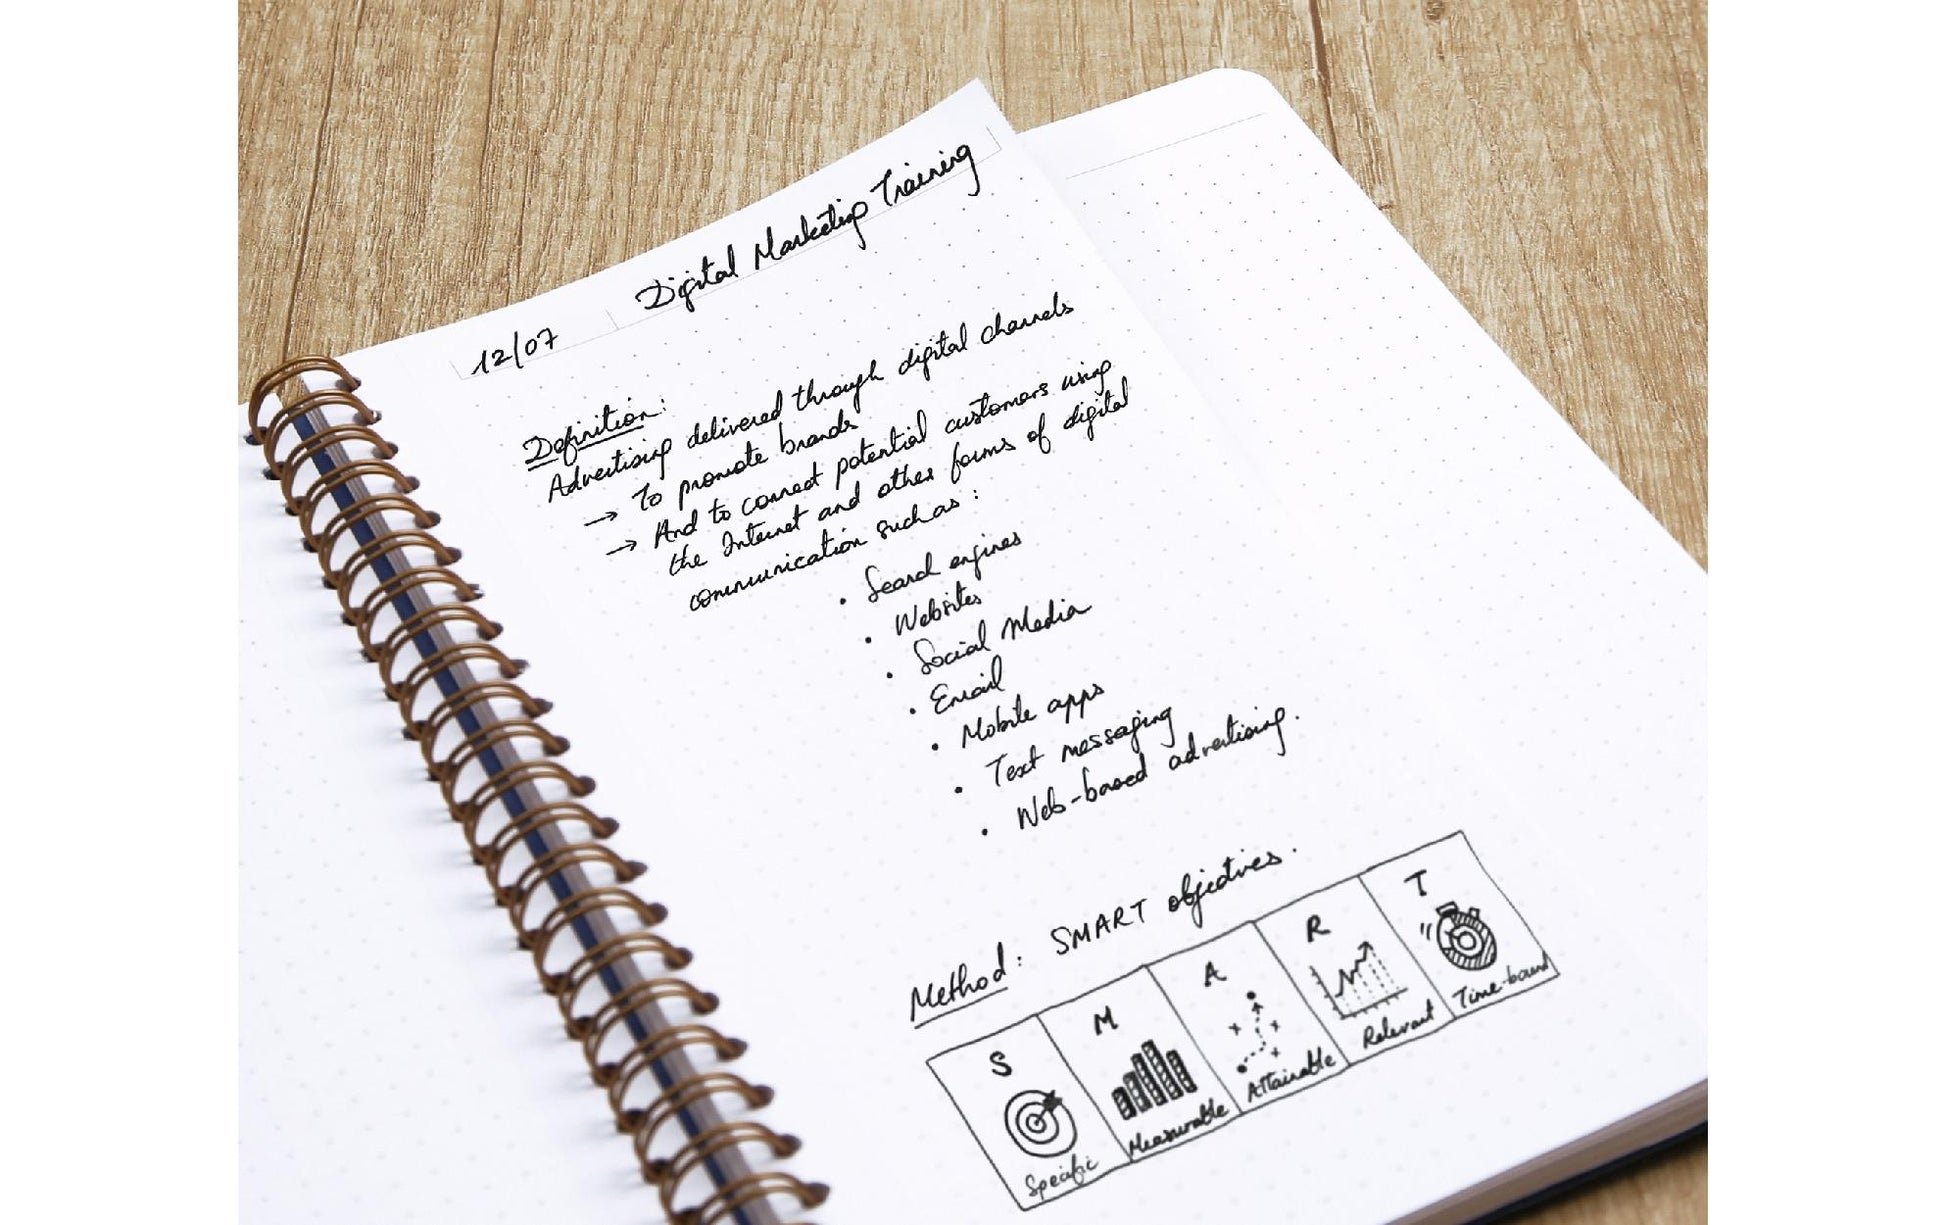 12/07
Digital Marketing Training
Definition:
Advertising delivered through digital channels
→ To promote brands
→ And to connect potential customers using
the Internet and other forms of digital
communication such as:
• Search engines
• Websites
• Social Media
• Email
• Mobile apps
• Text messaging
• Web-based advertising.
Method: SMART objectives.
S M A R T
Specific Measurable Attainable Relevant Time-bound